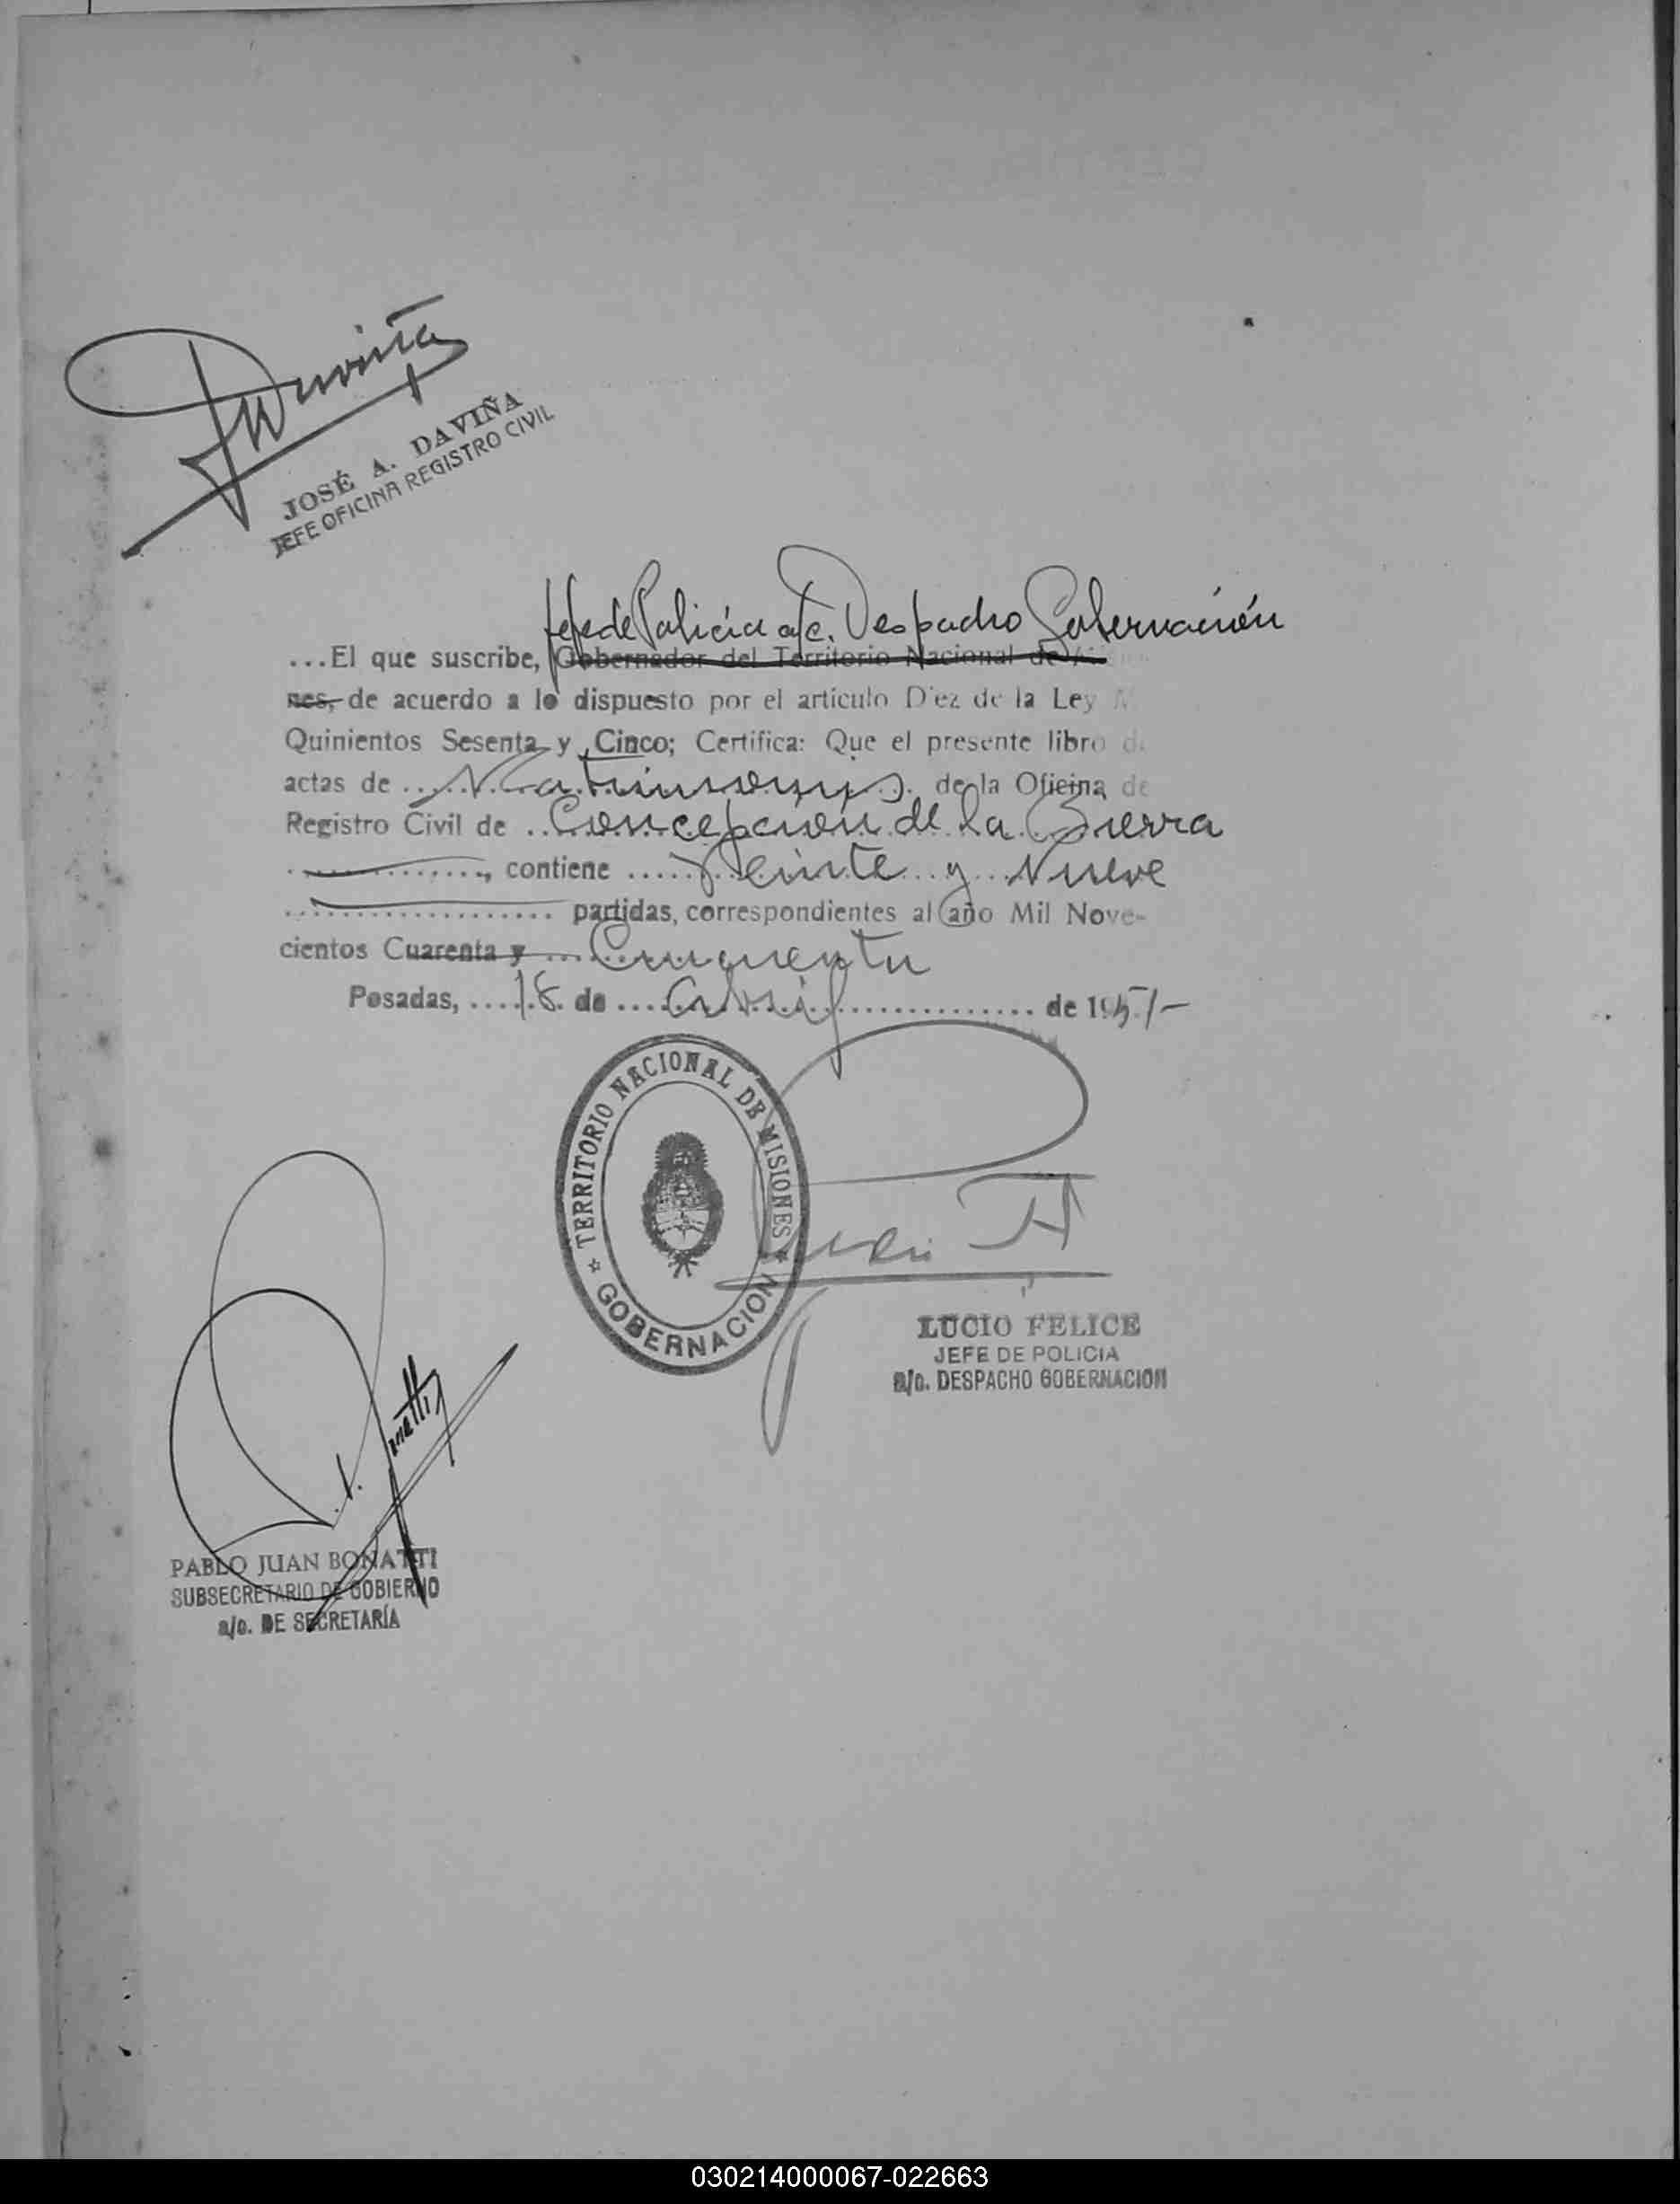 Daviña
JOSÉ A. DAVIÑA
JEFE OFICINA REGISTRO CIVIL
Jefe de Policía a/c. Despacho Gobernación
...El que suscribe, Gobernador del Territorio Nacional de
nes, de acuerdo a lo dispuesto por el artículo Diez de la Ley
Quinientos Sesenta y Cinco; Certifica: Que el presente libro de
actas de ... Matrimonios. de la Oficina de
Registro Civil de ..Concepcion de la Sierra
............., contiene ..... Veinte y Nueve
.................. partidas, correspondientes al año Mil Nove-
cientos Cuarenta y .... Cincuenta
Posadas, ....18. de ... Abril ............... de 1951-
TERRITORIO NACIONAL DE MISIONES
GOBERNACION
LUCIO FELICE
JEFE DE POLICIA
a/c. DESPACHO GOBERNACION
PABLO JUAN BONATTI
SUBSECRETARIO DE GOBIERNO
a/c. DE SECRETARÍA
030214000067-022663